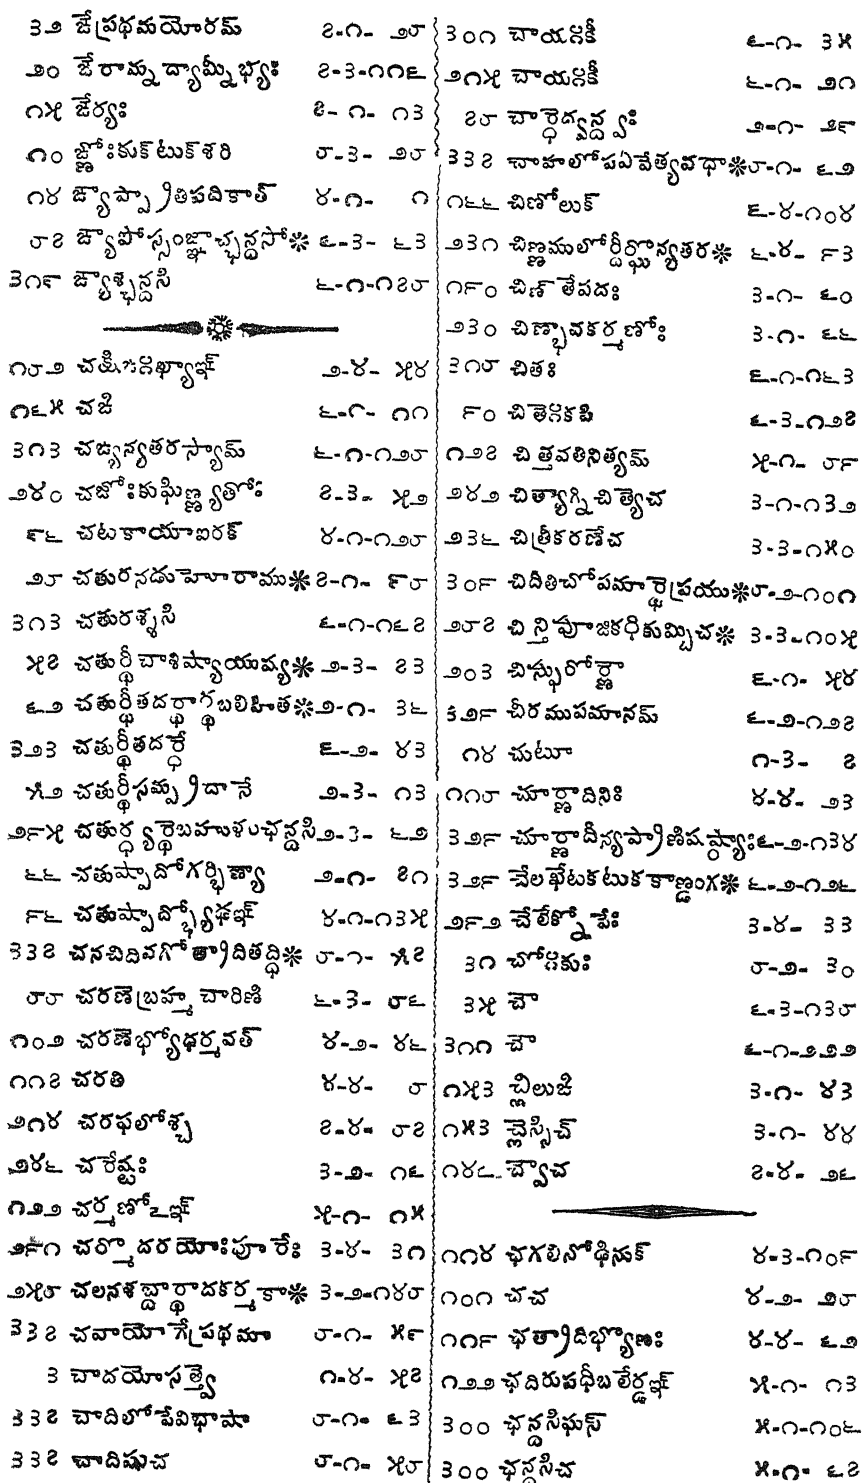 ౩౨ ఙేప్రథమయోరమ్ ౭-౧- ౨౮
౨౦ ఙేరామ్నద్యామ్నీభ్యః ౭-౩-౧౧౬
౧౫ ఙేర్యః ౭- ౧- ౧౩
౧౦ ఙ్ణోఃకుక్‌టుక్‌శరి ౮-౩- ౨౮
౧౪ ఙ్యాప్ప్రాతిపదికాత్ ౪-౧- ౧
౮౭ ఙ్యాపోస్సంజ్ఞాచ్ఛన్దసో❋ ౬-౩- ౬౩
౩౧౯ ఙ్యాశ్ఛన్దసి ౬-౧-౧౭౮
౧౮౨ చక్షిఙఃఖ్యాఞ్ ౨-౪- ౫౪
౧౬౫ చఙి ౬-౧- ౧౧
౩౧౩ చఙ్యన్యతరస్యామ్ ౬-౧-౧౨౮
౨౪౦ చజోఃకుఘిణ్ణ్యతోః ౭-౩- ౫౨
౯౬ చటకాయాఐరక్ ౪-౧-౧౨౮
౨౮ చతురనడుహోరాము❋ ౭-౧- ౯౮
౩౧౩ చతురశ్శసి ౬-౧-౧౬౭
౫౭ చతుర్థీచాశిష్యాయుష్య❋ ౨-౩- ౭౩
౬౨ చతుర్థీతదర్థార్థబలిహిత❋ ౨-౧- ౩౬
౩౨౩ చతుర్థీతదర్థే ౬-౨- ౪౩
౫౨ చతుర్థీసమ్ప్రదానే ౨-౩- ౧౩
౨౯౫ చతుర్థ్యర్థెబహుళంఛన్దసి ౨-౩- ౬౨
౬౬ చతుష్పాదోగర్భిణ్యా ౨-౧- ౭౧
౯౬ చతుష్పాద్భ్యోఢఞ్ ౪-౧-౧౩౫
౩౩౭ చనచిదివగోత్రాదితద్ధి❋ ౮-౧- ౫౭
౮౮ చరణెబ్రహ్మచారిణి ౬-౩- ౮౬
౧౦౨ చరణెభ్యోధర్మవత్ ౪-౨- ౪౬
౧౧౭ చరతి ౪-౪- ౮
౨౧౪ చరఫలోశ్చ ౭-౪- ౮౭
౨౪౬ చరేష్టః ౩-౨- ౧౬
౧౨౨ చర్మణోఽఞ్ ౫-౧- ౧౫
౨౯౧ చర్మోదరయోఃపూరేః ౩-౪- ౩౧
౨౫౮ చలనశబ్దార్థాదకర్మకా❋ ౩-౨-౧౪౮
౩౩౭ చవాయోగేప్రథమా ౮-౧- ౫౯
౩ చాదయోసత్త్వె ౧-౪- ౫౭
౩౩౭ చాదిలోపేవిభాషా ౮-౧- ౬౩
౩౩౭ చాదిషుచ ౮-౧- ౫౮
౩౦౧ చాయఃకీ ౬-౧- ౩౫
౨౧౫ చాయఃకీ ౬-౧- ౨౧
౭౮ చార్థెద్వన్ద్వః ౨-౧- ౨౯
౩౩౭ చాహలోపఏవేత్యవధా❋ ౮-౧- ౬౨
౧౬౬ చిణోలుక్ ౬-౪-౧౦౪
౨౩౧ చిణ్ణములోర్దీర్ఘోన్యతర❋ ౬-౪- ౯౩
౧౯౦ చిణ్ తేపదః ౩-౧- ౬౦
౨౩౦ చిణ్భావకర్మణోః ౩-౧- ౬౬
౩౧౮ చితః ౬-౧-౧౬౩
౯౦ చితెఃకపి ౬-౩-౧౨౭
౧౨౭ చిత్తవతినిత్యమ్ ౫-౧- ౮౯
౨౪౨ చిత్యాగ్నిచిత్యెచ ౩-౧-౧౩౨
౨౩౬ చిత్రీకరణేచ ౩-౩-౧౫౦
౩౦౯ చిదితిచోపమార్థెప్రయు❋ ౮-౨-౧౦౧
౨౮౭ చిన్తిపూజికథికుమ్బిచ❋ ౩-౩-౧౦౫
౨౦౩ చిస్ఫురోర్ణౌ ౬-౧- ౫౪
౩౨౯ చీరముపమానమ్ ౬-౨-౧౨౭
౧౪ చుటూ ౧-౩- ౭
౧౧౮ చూర్ణాదినిః ౪-౪- ౨౩
౩౨౯ చూర్ణాదీన్యప్రాణిషష్ఠ్యాః ౬-౨-౧౩౪
౩౨౯ చేలఖేటకటుకకాణ్డంగ❋ ౬-౨-౧౨౬
౨౯౨ చేలేక్నోపేః ౩-౪- ౩౩
౩౧ చోఃకుః ౮-౨- ౩౦
౩౫ చౌ ౬-౩-౧౩౮
౩౧౧ చౌ ౬-౧-౨౨౨
౧౫౩ చ్లిలుఙి ౩-౧- ౪౩
౧౫౩ చ్లెస్సిచ్ ౩-౧- ౪౪
౧౪౬ చ్వౌచ ౭-౪- ౨౬
౧౧౪ ఛగలినోఢినుక్ ౪-౩-౧౦౯
౧౦౧ ఛచ ౪-౨- ౨౮
౧౧౯ ఛత్రాదిభ్యొణః ౪-౪- ౬౨
౧౨౨ ఛదిరుపధీబలేర్ఢఞ్ ౫-౧- ౧౩
౩౦౦ ఛన్దసిఘస్ ౫-౧-౧౦౬
౩౦౦ ఛన్దసిచ ౫-౧- ౬౭